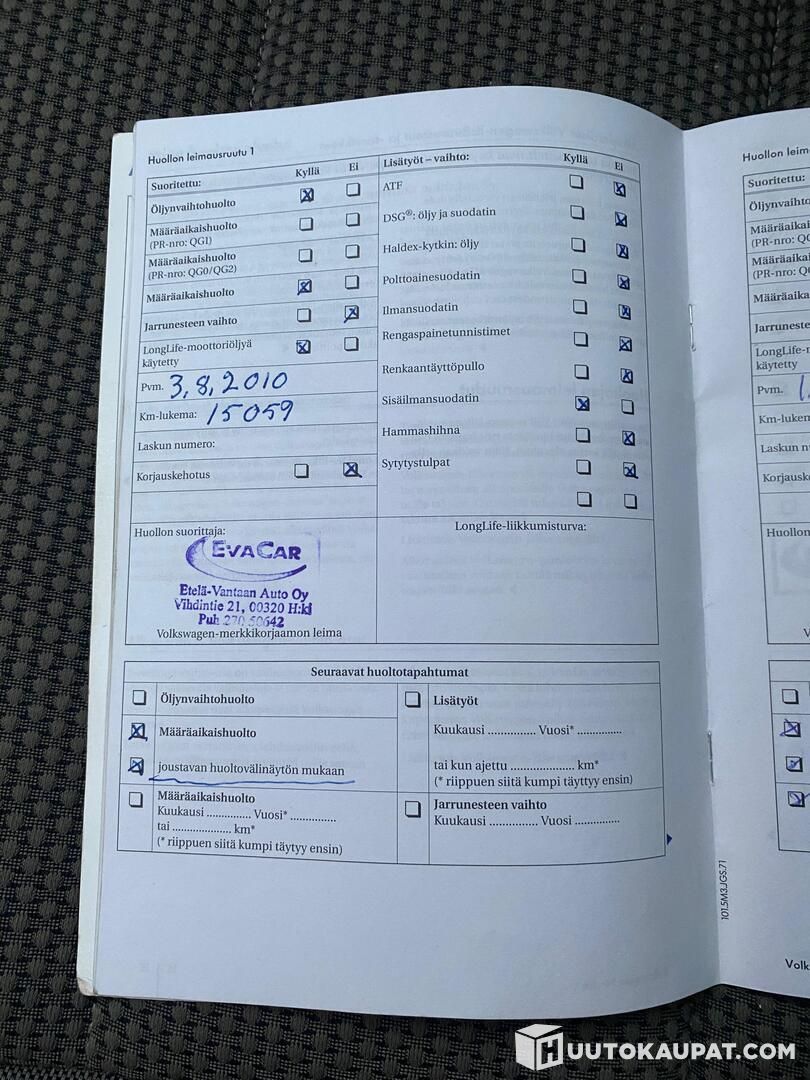 Huollon leimausruutu 1
Suoritettu: Kyllä Ei
Öljynvaihtohuolto
Määräaikaishuolto
(PR-nro: QG1)
Määräaikaishuolto
(PR-nro: QG0/QG2)
Määräaikaishuolto
Jarrunesteen vaihto
LongLife-moottoriöljyä
käytetty
Pvm. 3,8,2010
Km-lukema: 15059
Laskun numero:
Korjauskehotus
Lisätyöt – vaihto: Kyllä Ei
ATF
DSG®: öljy ja suodatin
Haldex-kytkin: öljy
Polttoainesuodatin
Ilmansuodatin
Rengaspainetunnistimet
Renkaantäyttöpullo
Sisäilmansuodatin
Hammashihna
Sytytystulpat
Huollon suorittaja:
EVACAR
Etelä-Vantaan Auto Oy
Vihdintie 21, 00320 H:ki
Puh 270 50642
Volkswagen-merkkikorjaamon leima
LongLife-liikkumisturva:
Seuraavat huoltotapahtumat
Öljynvaihtohuolto
Määräaikaishuolto
joustavan huoltovälinäytön mukaan
Määräaikaishuolto
Kuukausi ............... Vuosi* ...............
tai .................... km*
(* riippuen siitä kumpi täytyy ensin)
Lisätyöt
Kuukausi ............... Vuosi* ..............
tai kun ajettu ..................... km*
(* riippuen siitä kumpi täyttyy ensin)
Jarrunesteen vaihto
Kuukausi ............... Vuosi ..............
101.5M3.JGS.71
Huollon leim
Suoritettu:
Öljynvaihto
Määräaikai
(PR-nro: QG
Määräaikai
(PR-nro: QG
Määräaikai
Jarrunestee
LongLife-m
käytetty
Pvm.
Km-lukem
Laskun nu
Korjausk
Huollon
V
Volk
HUUTOKAUPAT.COM